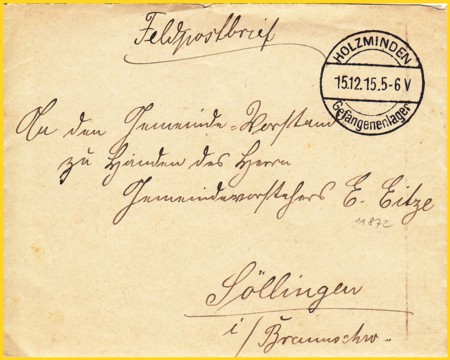 Feldpostbrief
HOLZMINDEN
15.12.15.5-6 V
Gefangenenlager
An den Gemeinde-Vorstand
zu Händen des Herrn
Gemeindevorstehers E. Eitze
11872
Söllingen
i/Braunschw.